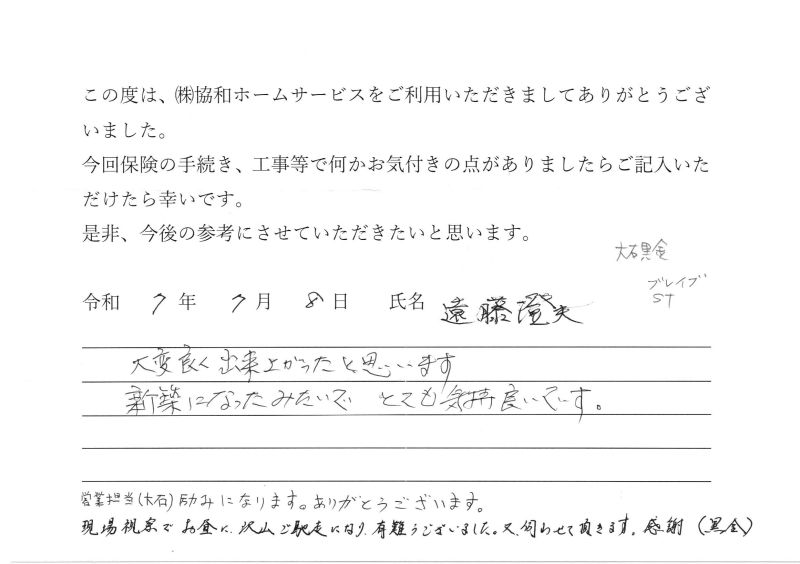 この度は、㈱協和ホームサービスをご利用いただきましてありがとうござ
いました。
今回保険の手続き、工事等で何かお気付きの点がありましたらご記入いた
だけたら幸いです。
是非、今後の参考にさせていただきたいと思います。
大石黒金
ブレイブ
ST
令和 7 年 7 月 8 日 氏名 遠藤澄夫
大変良く出来上がったと思いいます
新築になったみたいで とても気持良いいです。
営業担当(大石)励みになります。ありがとうございます。
現場視察でお昼に、沢山ご馳走になり、有難うございました。又、伺わせて頂きます。感謝(黒金)